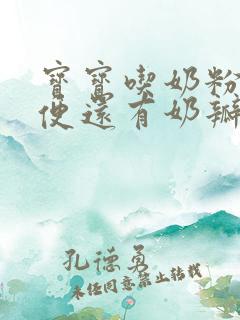 寳寳喫奶粉
便還有奶瓣
孔德勇
未经同意禁止转载